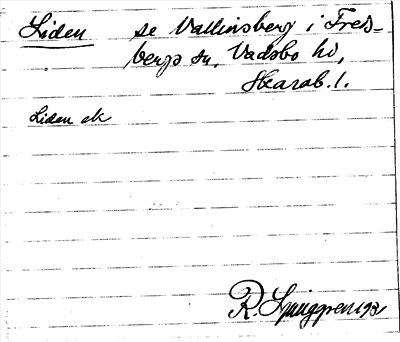 Liden se Vallinsberg i Freds=
bergs sn, Vadsbo hd,
Skarab. l.
Liden ek
R. Ljunggren 1931